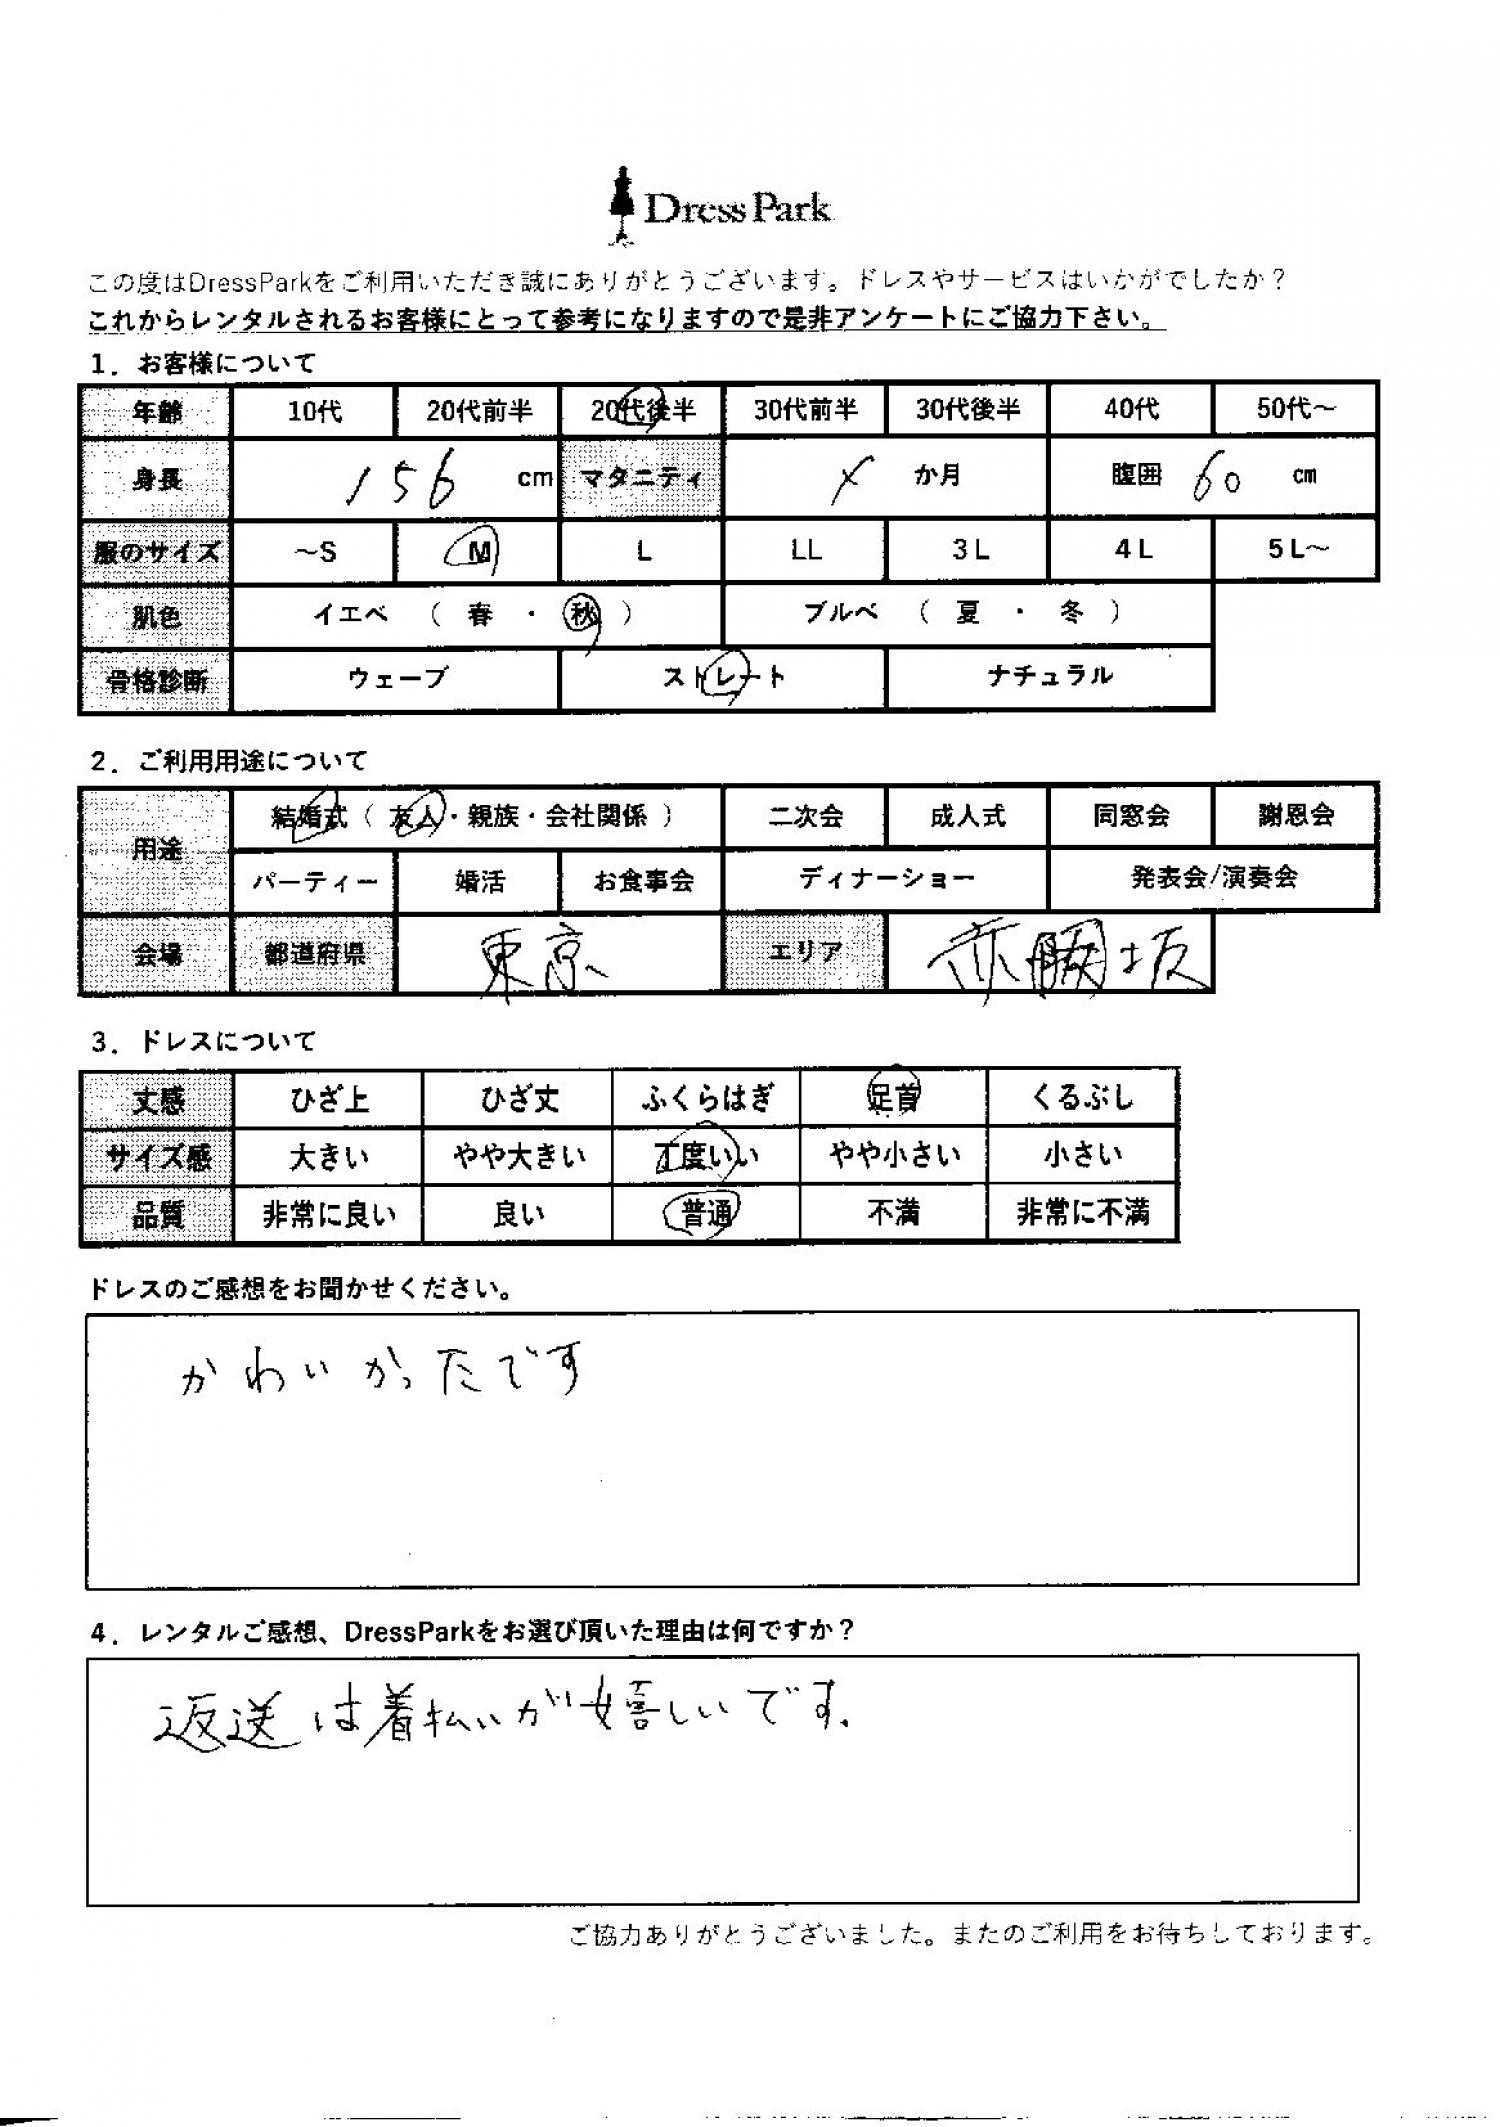 Dress Park
この度はDressParkをご利用いただき誠にありがとうございます。ドレスやサービスはいかがでしたか？
これからレンタルされるお客様にとって参考になりますので是非アンケートにご協力下さい。
1．お客様について
年齢 10代 20代前半 20代後半 30代前半 30代後半 40代 50代～
身長 156 cm マタニティ × か月 腹囲 60 cm
服のサイズ ～S M L LL 3L 4L 5L～
肌色 イエベ （ 春 ・ 秋 ） ブルベ （ 夏 ・ 冬 ）
骨格診断 ウェーブ ストレート ナチュラル
2．ご利用用途について
用途 結婚式（ 友人・親族・会社関係 ） 二次会 成人式 同窓会 謝恩会
パーティー 婚活 お食事会 ディナーショー 発表会/演奏会
会場 都道府県 東京 エリア 赤坂
3．ドレスについて
丈感 ひざ上 ひざ丈 ふくらはぎ 足首 くるぶし
サイズ感 大きい やや大きい 丁度いい やや小さい 小さい
品質 非常に良い 良い 普通 不満 非常に不満
ドレスのご感想をお聞かせください。
かわいかったです
4．レンタルご感想、DressParkをお選び頂いた理由は何ですか？
返送は着払いが嬉しいです.
ご協力ありがとうございました。またのご利用をお待ちしております。